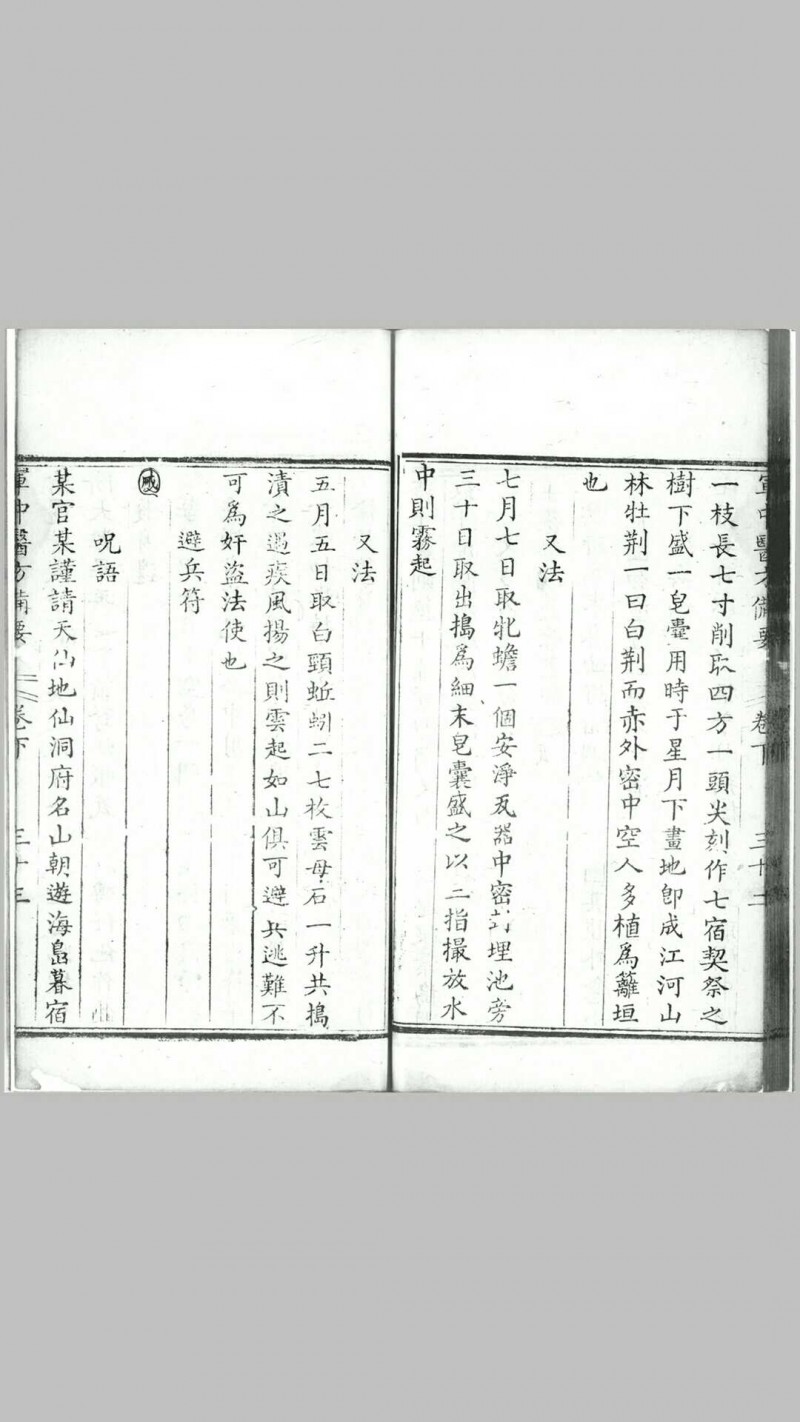 軍中醫方備要 卷下 三十二
一枝長七寸削取四方一頭尖刻作七宿契祭之
樹下盛一皂囊用時于星月下畫地卽成江河山
林牡荆一曰白荆而赤外密中空人多植爲籬垣
也
又法
七月七日取牝蟾一個安淨瓦器中密封埋池旁
三十日取出搗爲細末皂囊盛之以二指撮放水
中則霧起
又法
五月五日取白頸蚯蚓二七枚雲母石一升共搗
漬之遇疾風揚之則雲起如山俱可避兵逃難不
可爲奸盜法使也
避兵符
呪語
某官某謹請天仙地仙洞府名山朝遊海島暮宿
軍中醫方備要 卷下 三十三